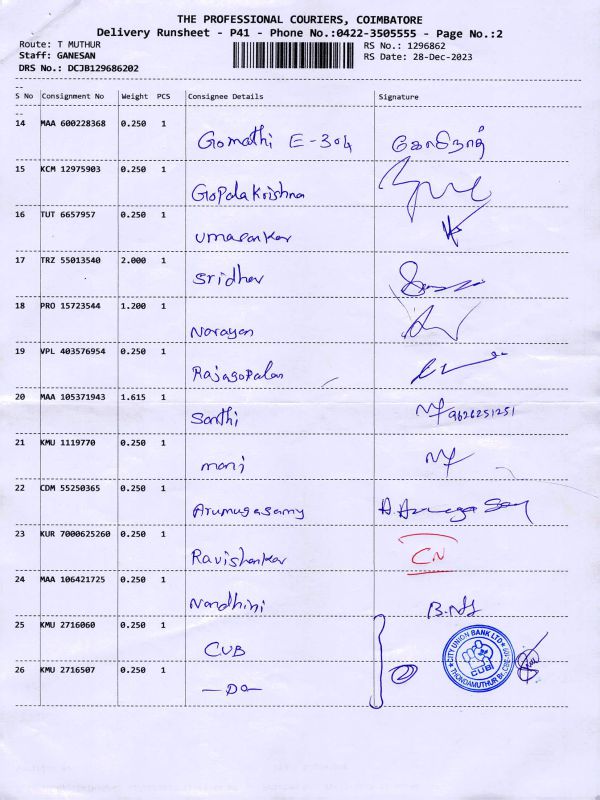 THE PROFESSIONAL COURIERS, COIMBATORE
Delivery Runsheet - P41 - Phone No.:0422-3505555 - Page No.:2
Route: T MUTHUR RS No.: 1296862
Staff: GANESAN RS Date: 28-Dec-2023
DRS No.: DCJB129686202
S No Consignment No Weight PCS Consignee Details Signature
14 MAA 600228368 0.250 1 Gomathi E-304
15 KCM 12975903 0.250 1 Gopalakrishna
16 TUT 6657957 0.250 1 Umasankar
17 TRZ 55013540 2.000 1 Sridhar
18 PRO 15723544 1.200 1 Narayan
19 VPL 403576954 0.250 1 Rajagopalan
20 MAA 105371943 1.615 1 Santhi 9626251251
21 KMU 1119770 0.250 1 mani
22 CDM 55250365 0.250 1 Arumugasamy
23 KUR 7000625260 0.250 1 Ravishankar CN
24 MAA 106421725 0.250 1 Nandhini
25 KMU 2716060 0.250 1 CUB
CITY UNION BANK LTD
CUB
26 KMU 2716507 0.250 1 —DO—